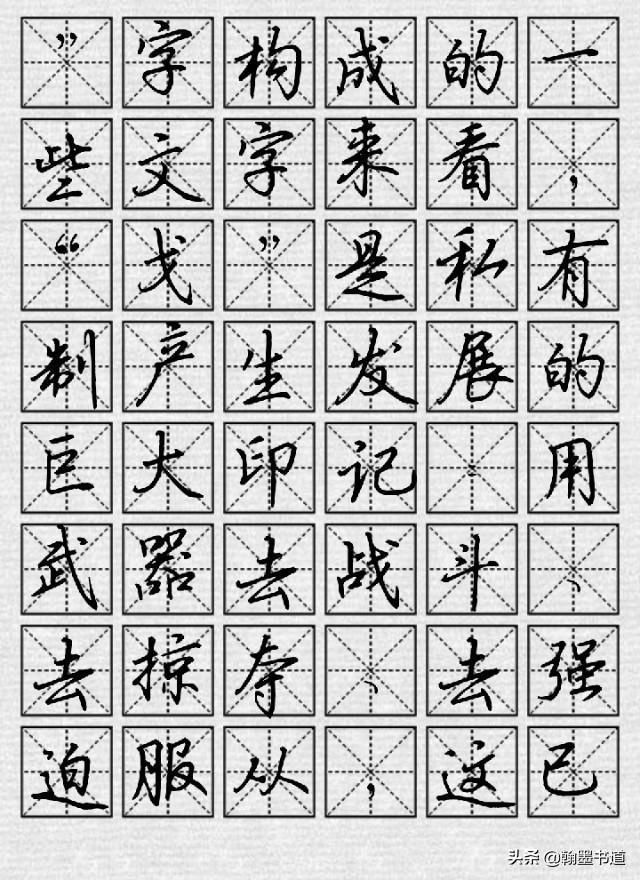 ”字构成的一
些文字来看，
“戈”是私有
制产生发展的
巨大印记：用
武器去战斗、
去掠夺、去强
迫服从，这已
头条 @翰墨书道